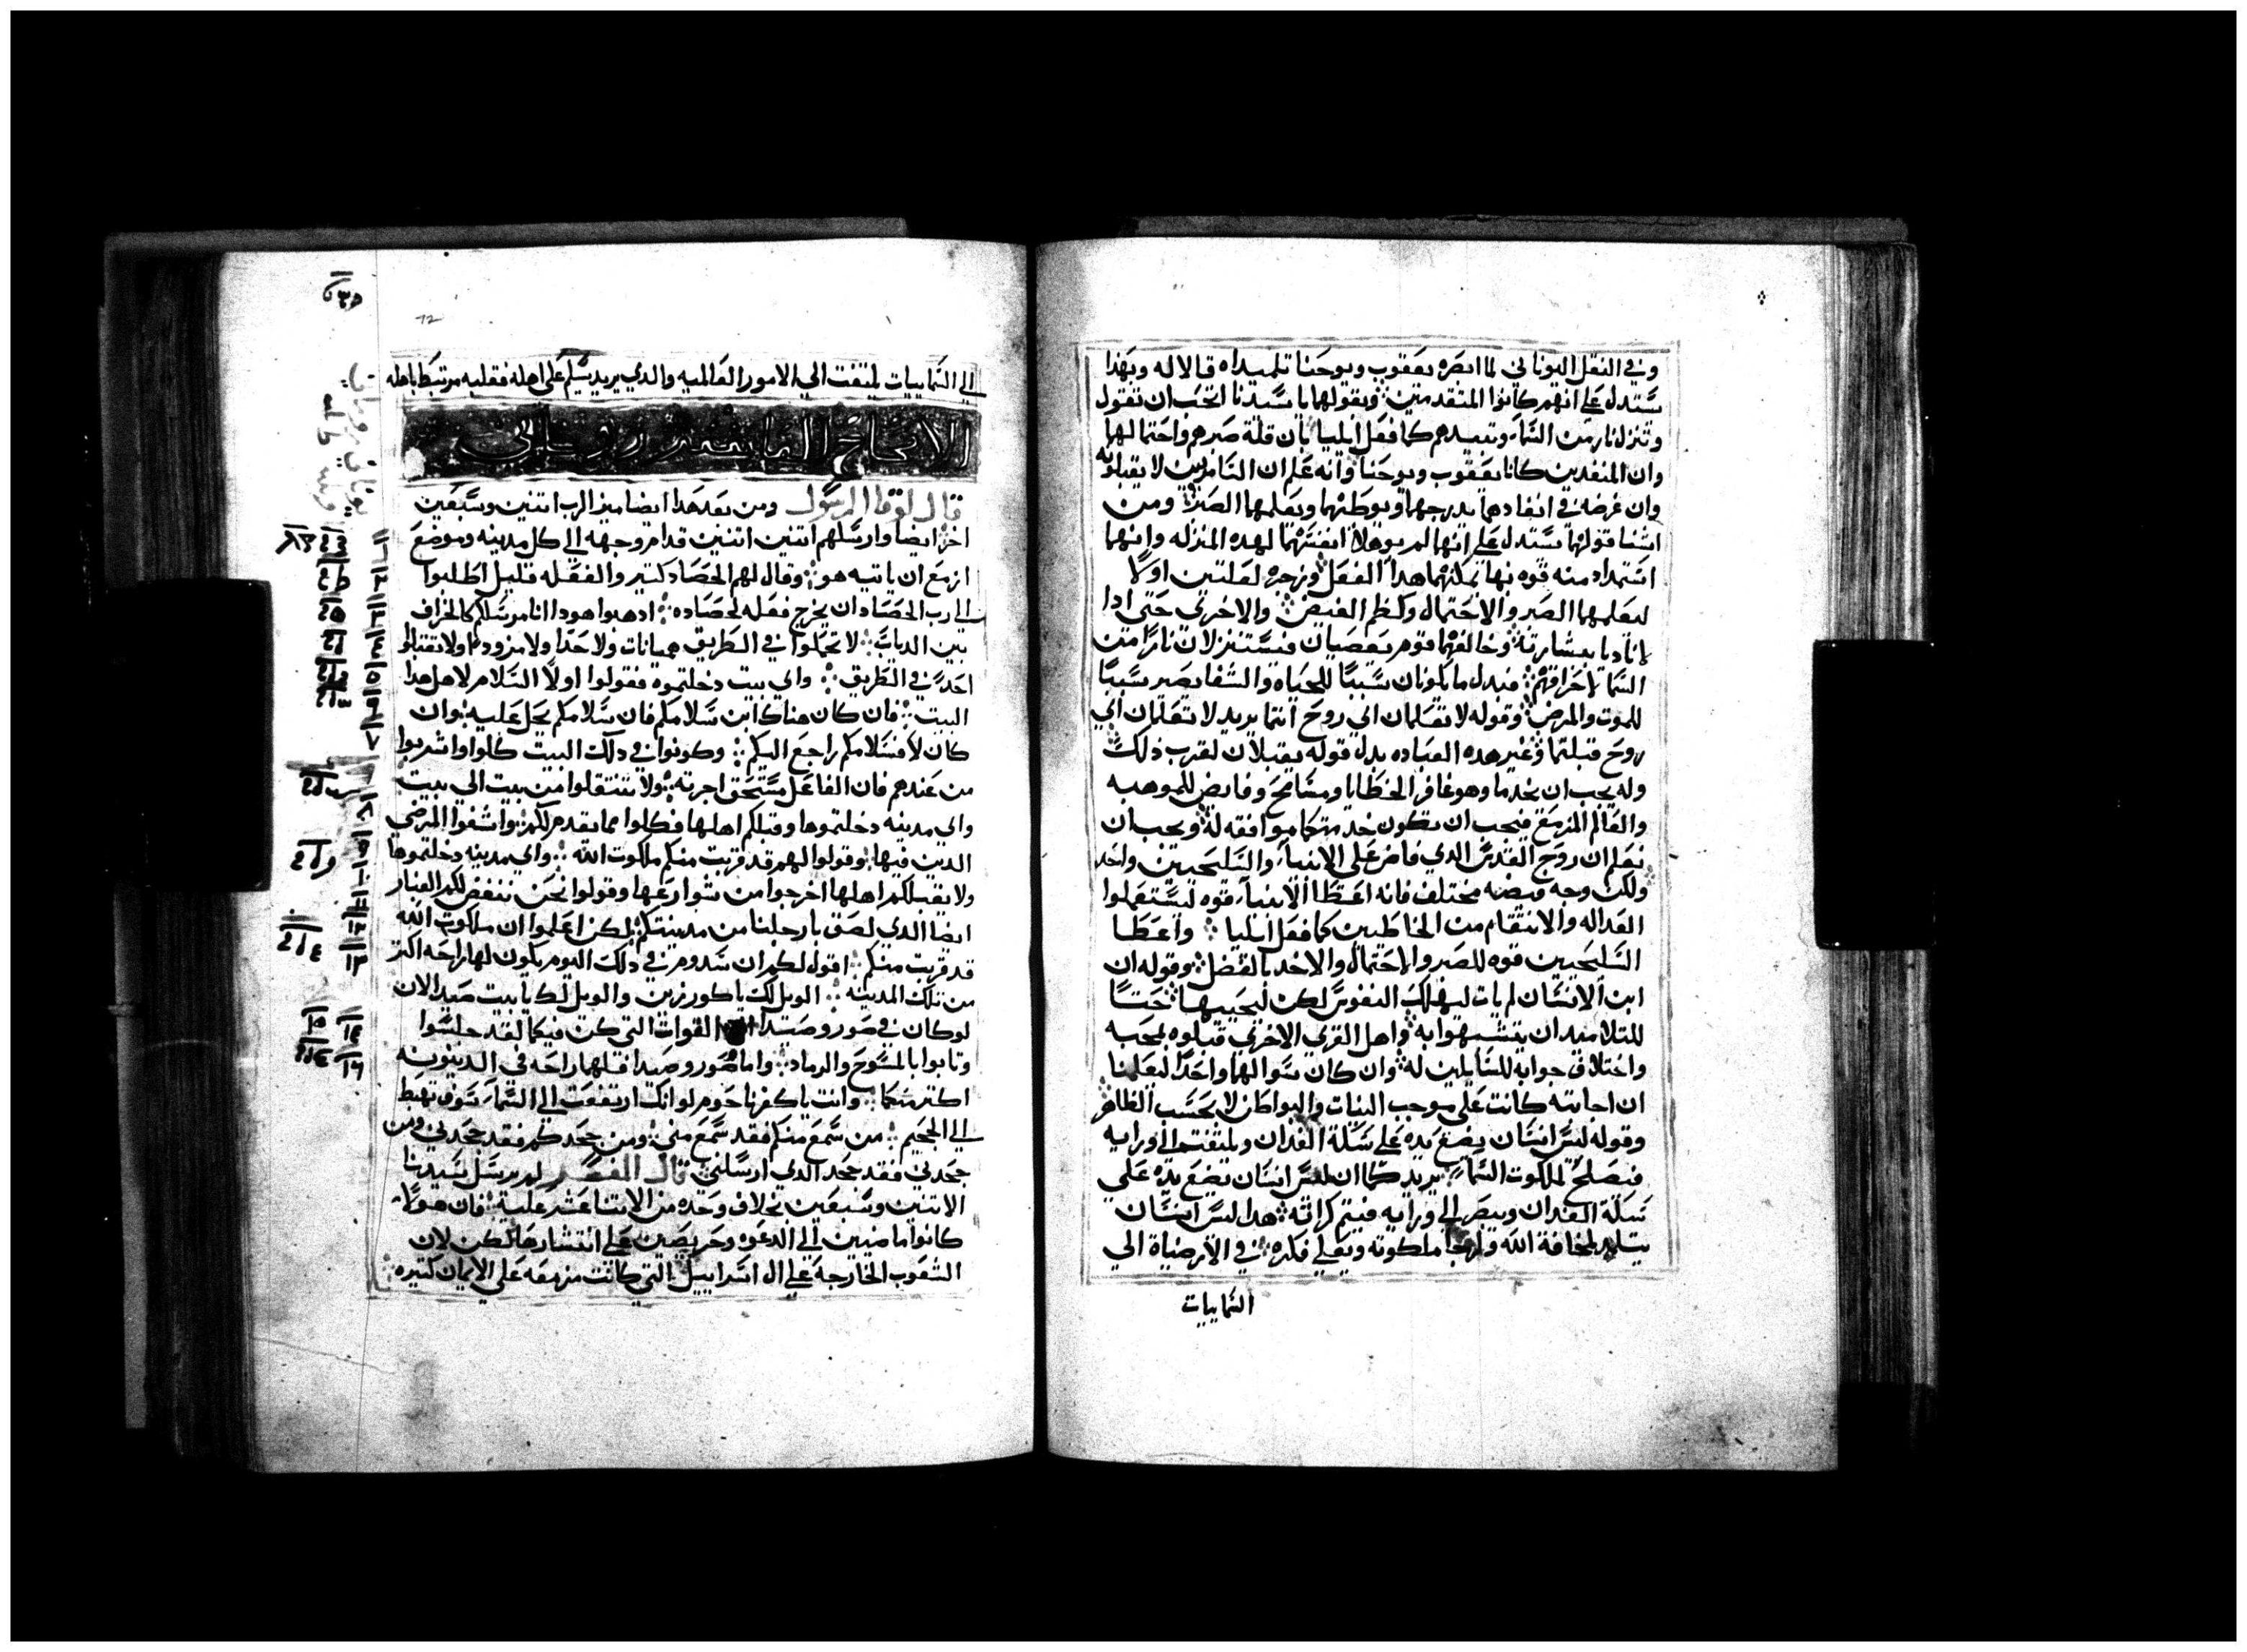 وفي النقل اليوناني لما ابصره يعقوب ويوحنا تلميداه قالا له وبهدا
يستدل علي انهم كانوا المتقدمين وبقولهما يا سيدنا اتحب ان نقول
وتنزل نار من السما وتبيدهم كما فعل ايليا بان قلة صبرهم واحتمالهما
وان المنفدين كانا يعقوب ويوحنا وانه علم ان السامريين لا يقبلونه
وان غرضه في انفادهما يدرجهما ويوطنهما ويعلمهما الصبر ومن
اثنا قولهما يستدل علي انهما لم يوهلا انفسهما لهده المنزله وانهما
استمدا منه قوه بها يمكنهما هدا الفعل وزجره لعلتين اولا
ليعلمهما الصبر والاحتمال وكظم الغيض والاخري حتي ادا
نادبا ببشارته وخالفهما قوم يغصبان فيستنزلان نارا من
السما لاحراقهم فبدل ما يكونان سببا للحياه والشفا يصير سببا
للموت والمرض وقوله لا تعلمان اني روح انتما يريد لا تعلمان اي
روح قبلتما وغير هده العباده بدل قوله يقبلان لقرب ذلك
وله يجب ان يخدما وهو غافر الخطايا ومسامح وفايض للموهبه
والعالم المزمع فيجب ان تكون خدمتكما موافقه له ويجب ان
نعلم ان روح القدس الدي فاض علي الانبيا والسليحيين واحد
ولكن وجه فيضه مختلف فانه اعطا الانبيا قوه ليستعملوا
العداله والانتقام من الخاطيين كما فعل ايليا واعطا
السليحيين قوه للصبر والاحتمال والاخد بالفضل وقوله ان
ابن الانسان لم يات ليهلك النفوس لكن ليحييها حثا
للتلاميد ان يتشبهوا به واهل القري الاخري قبلوه بمحبه
واختلاف جوابه للسايلين له وان كان سوالهما واحدا ليعلمنا
ان اجابته كانت علي موجب النيات والبواطن لا بحسب الظاهر
وقوله ليس انسان يضع يده علي سكة الفدان ويلتفت الي ورايه
فيصلح لملكوت السما يريد كما ان ليس انسان يضع يده علي
سكة الفدان ويبصر الي ورايه فيتم كرابه هدا ليس انسان
يتلمد لمخافة الله ولرجا ملكوته ويعلي فكره في الارضياة الي
السماييات
الي السماييات يلتفت الي الامور العالميه والدي يريد يسلم علي اهله فقلبه مرتبط باهله
الاصحاح
قال لوقا الرسول ومن بعد هدا ايضا ميز الرب اتنين وسبعين
اخر ايضا وارسلهم اتنين اتنين قدام وجهه الي كل مدينه وموضع
ازمع ان ياتيه هو وقال لهم الحصاد كتير والفعله قليل اطلبوا
الي رب الحصاد ان يخرج فعله لحصاده ادهبوا هودا انا مرسلكم كالخراف
بين الدياب لا تحملوا في الطريق هميانات ولا حدا ولا مزودا ولا تقبلوا
احد في الطريق واي بيت دخلتموه فقولوا اولا السلام لاهل هدا
البيت فان كان هناك ابن سلامكم فان سلامكم يحل عليه وان
كان لا فسلامكم راجع اليكم وكونوا في دلك البيت كلوا واشربوا
من عندهم فان الفاعل مستحق اجرته ولا تنتقلوا من بيت الي بيت
واي مدينه دخلتموها وقبلكم اهلها فكلوا مما يقدم لكم واشفوا المرضي
الدين فيها وقولوا لهم قد قربت منكم ملكوت الله واي مدينه دخلتموها
ولا يقبلكم اهلها اخرجوا من شوارعها وقولوا نحن ننفض لكم الغبار
ايضا الدي لصق بارجلنا من مدينتكم لكن اعلموا ان ملكوت الله
قد قربت منكم اقول لكم ان سدوم في دلك اليوم يكون لها راحه اكتر
من تلك المدينه الويل لك يا كورزين والويل لك يا بيت صيدا لان
لو كان في صور وصيدا القوات التي كن فيكما لقد جلسوا
وتابوا بالمسوح والرماد واما صور وصيدا فلهما راحه في الدينونه
اكتر منكما وانت يا كفرناحوم لو انك ارتفعت الي السما سوف تهبط
الي الجحيم من سمع منكم فقد سمع مني ومن جحدكم فقد جحدني ومن
جحدني فقد جحد الدي ارسلني قال المفسر لم يرسل سيدنا
الاتنين وسبعين بخلاف وحده من الاتنا عشر علية فان هولا
كانوا ماضيين الي الدعوه وحريصين علي انتشارها لكن لان
الشعوب الخارجه علي ال اسراييل التي كانت مزمعه علي الايمان كتيره